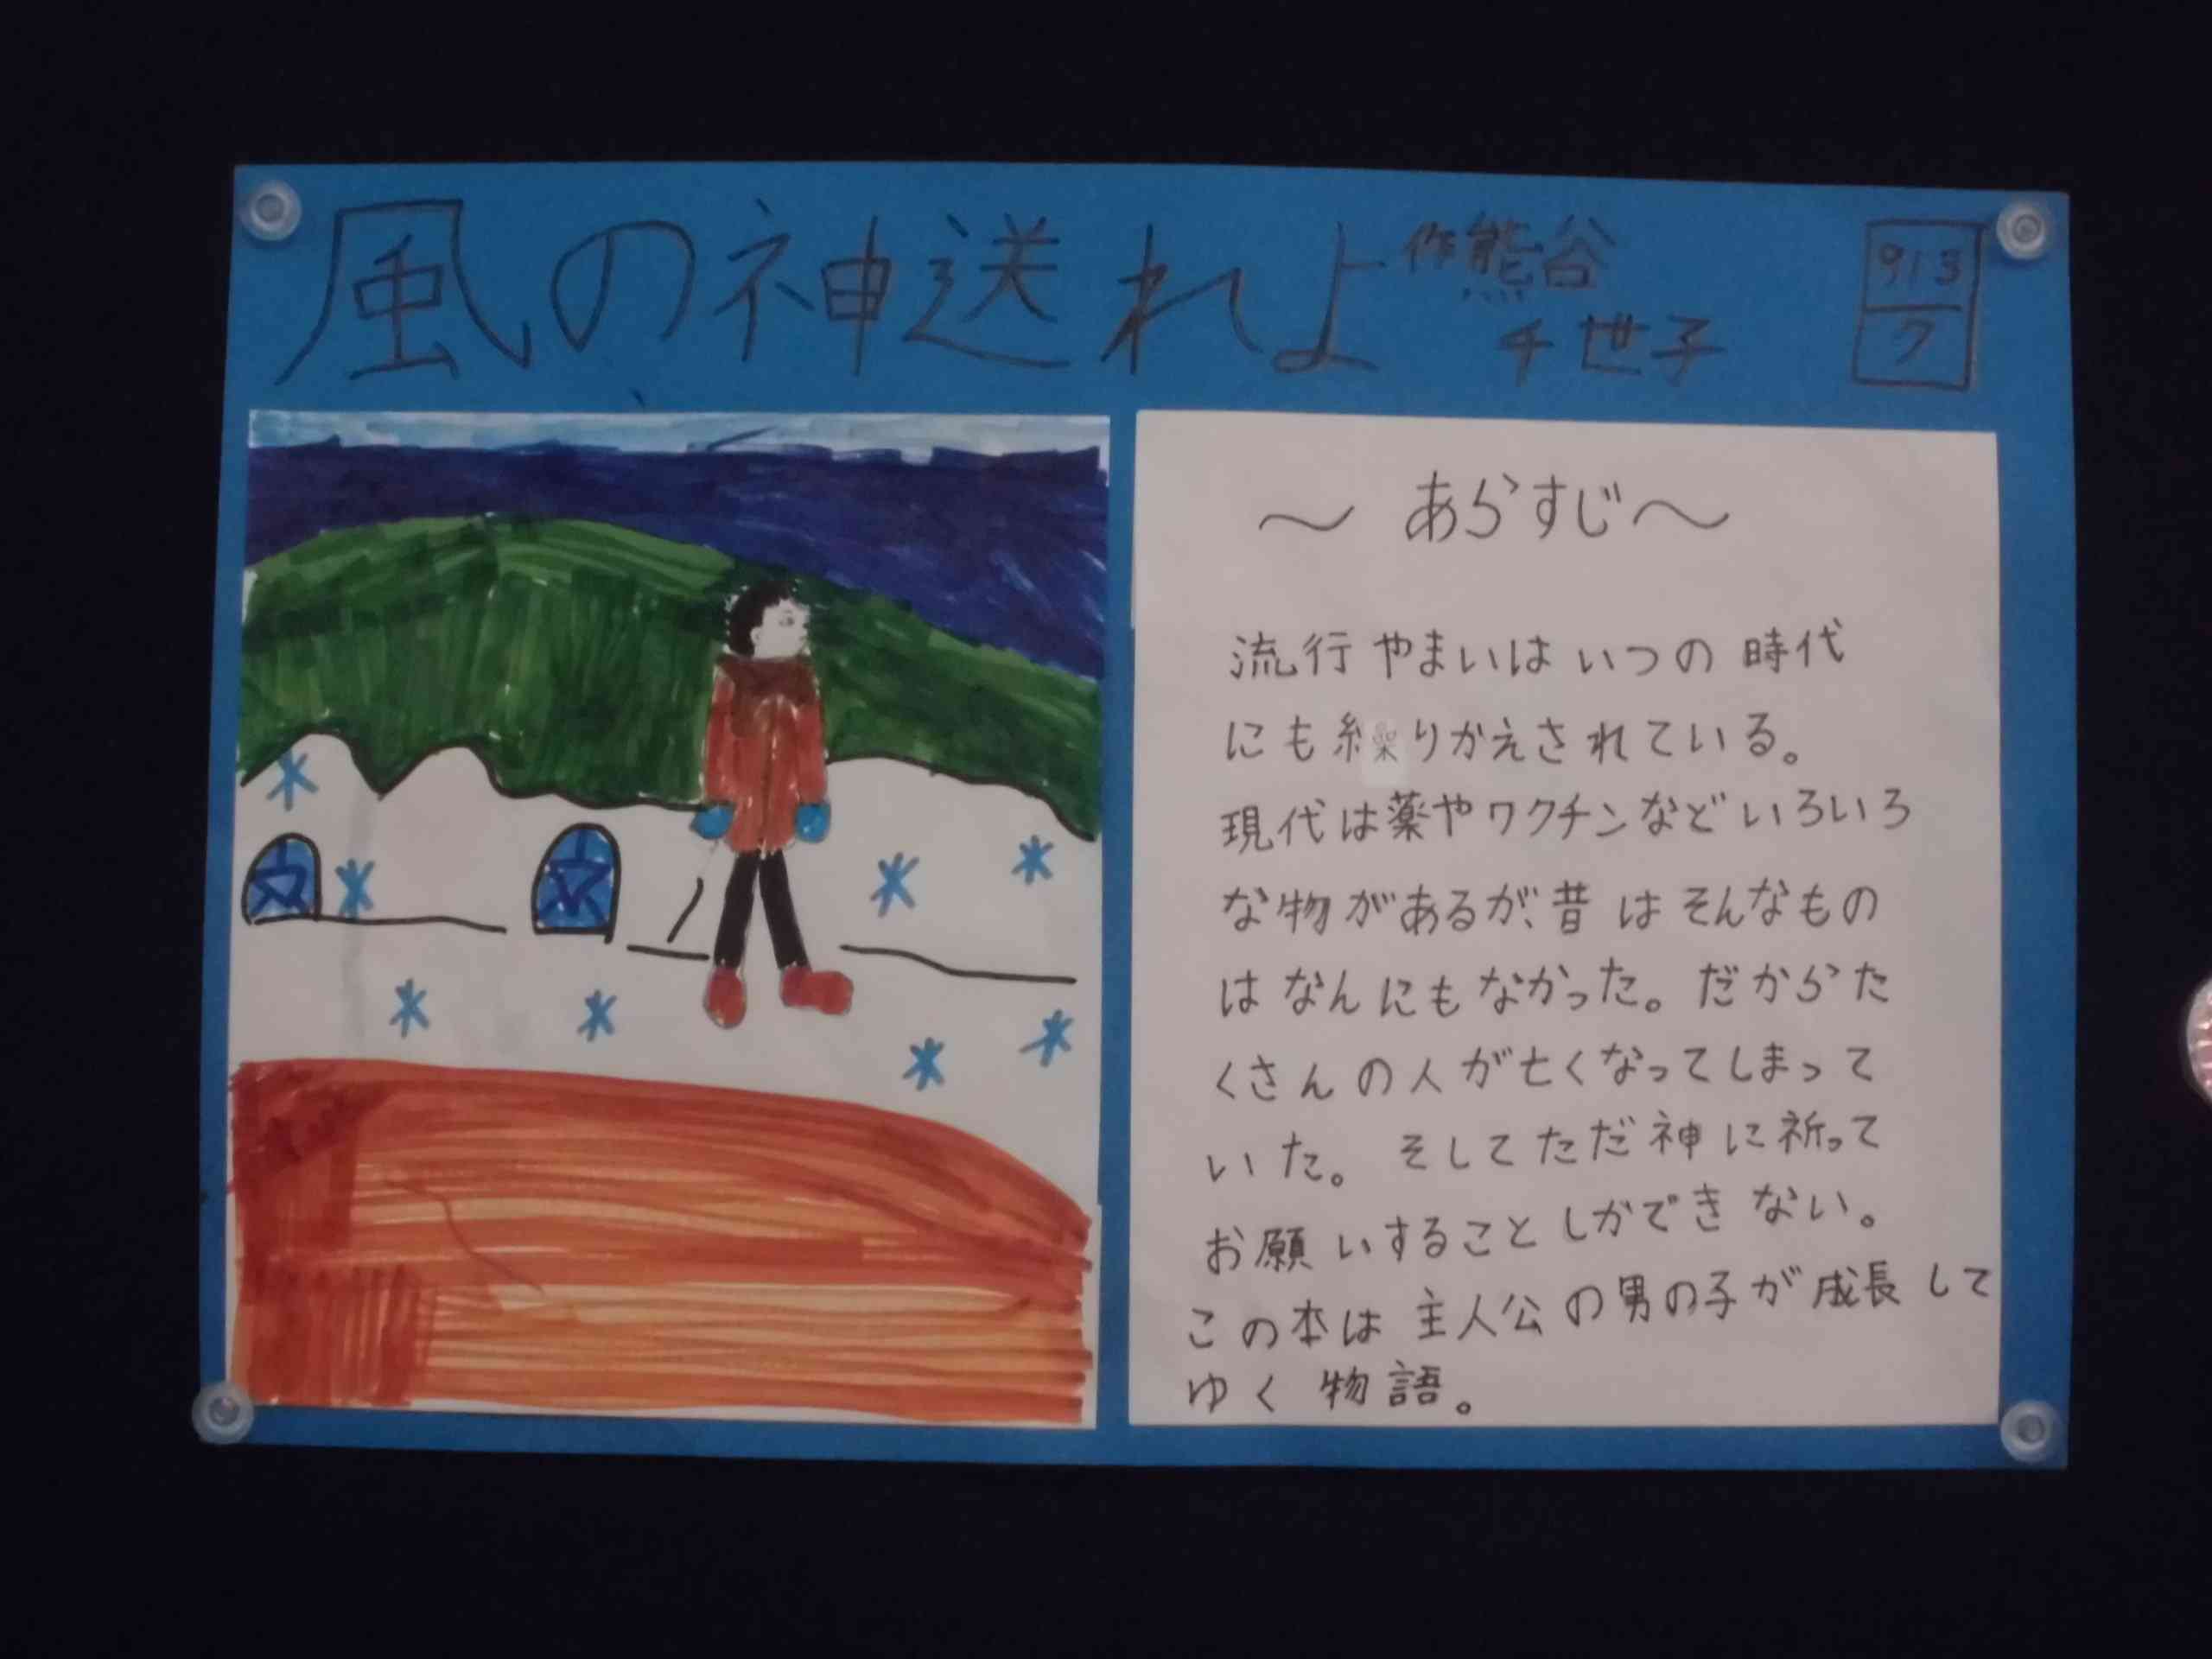 風の神送れよ
作熊谷
千世子
913
ク
～あらすじ～
流行やまいはいつの時代
にも繰りかえされている。
現代は薬やワクチンなどいろいろ
な物があるが、昔はそんなもの
はなんにもなかった。だからた
くさんの人が亡くなってしまって
いた。そしてただ神に祈って
お願いすることしかできない。
この本は主人公の男の子が成長して
ゆく物語。